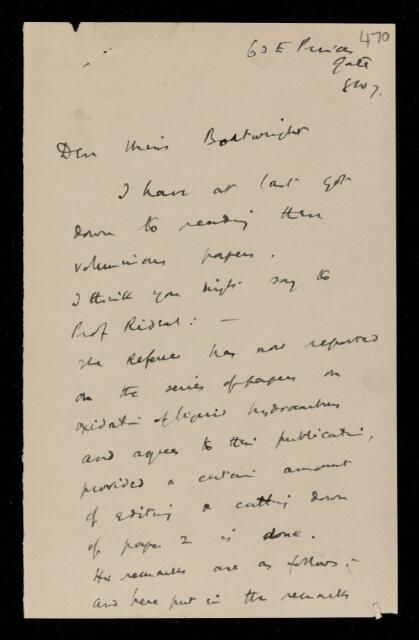 470
63 E Princes
Gate
SW7.
Dear Miss Boatwright
I have at last got
down to reading these
voluminous papers.
I think you might say to
Prof Rideal: —
The Referee has now reported
on the series of papers on
oxidation of liquid hydrocarbons
and agrees to their publication,
provided a certain amount
of editing & cutting down
of paper 2 is done.
His remarks are as follows:-
and here put in the remarks